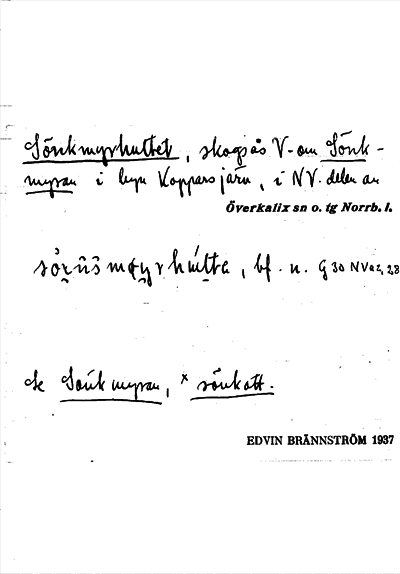 Sönkmyrhuttet, skogsås V-om Sönk-
myran i byn Koppersjärn, i NV. delen av
Överkalix sn o. tg Norrb. l.
bf. n. G 30 NV a 2, 28
Se Sönkmyran, x sönkott.
EDVIN BRÄNNSTRÖM 1937